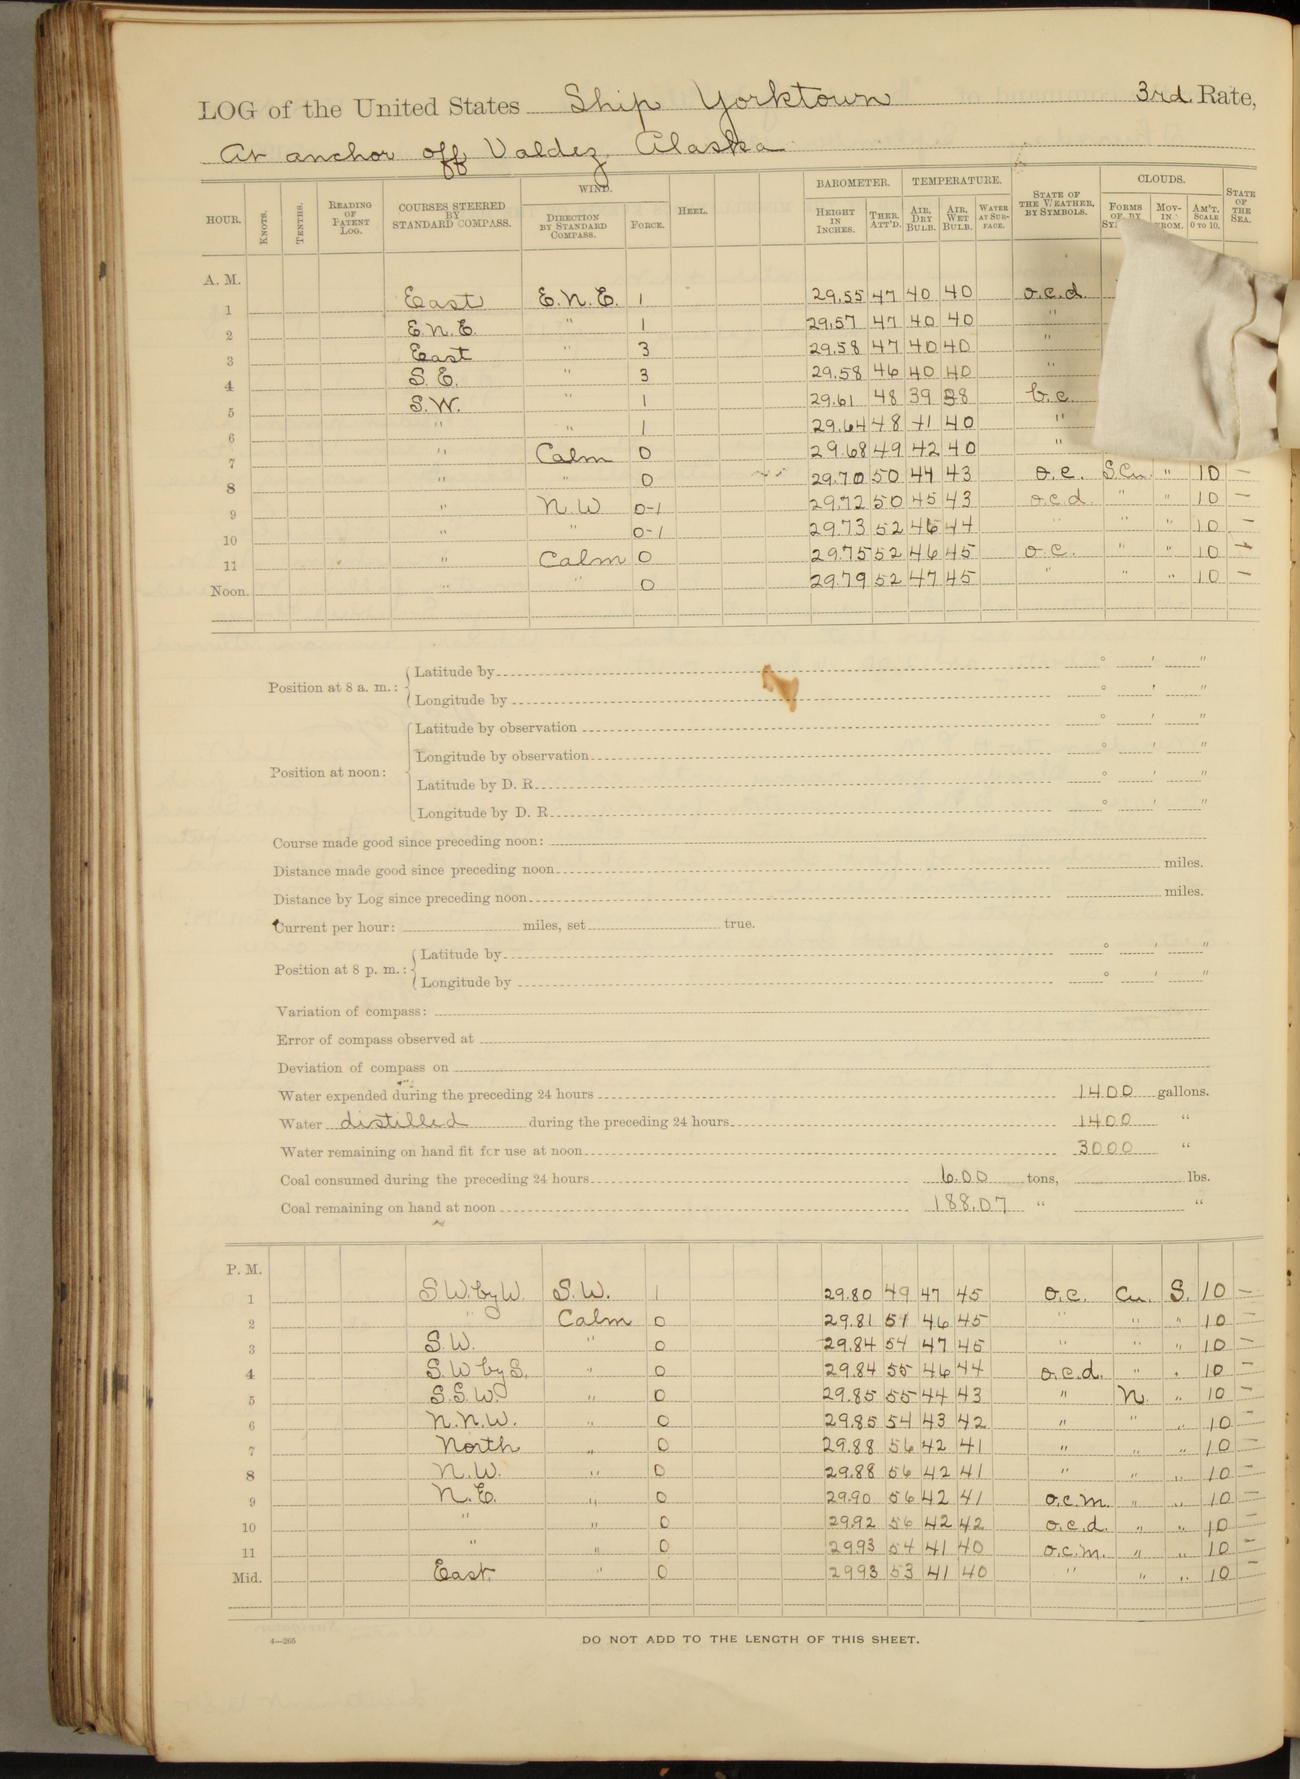 LOG of the United States Ship Yorktown 3rd Rate,
At anchor off Valdez, Alaska
HOUR. KNOTS. TENTHS. READING OF PATENT LOG. COURSES STEERED BY STANDARD COMPASS. WIND. DIRECTION BY STANDARD COMPASS. FORCE. HEEL. BAROMETER. HEIGHT IN INCHES. THER. ATT'D. TEMPERATURE. AIR, DRY BULB. AIR, WET BULB. WATER AT SURFACE. STATE OF THE WEATHER, BY SYMBOLS. CLOUDS. FORMS OF, BY MOV- IN AM'T, SCALE 0 TO 10. STATE OF THE SEA.
A. M.
1 East E.N.E. 1 29.55 47 40 40 o.c.d.
2 E.N.E. " 1 29.57 47 40 40 "
3 East " 3 29.58 47 40 40 "
4 S.E. " 3 29.58 46 40 40 "
5 S.W. " 1 29.61 48 39 38 b.c.
6 " " 1 29.64 48 41 40 "
7 " Calm 0 29.68 49 42 40 "
8 " " 0 29.70 50 44 43 o.c. S.Cu. " 10 —
9 " N.W 0-1 29.72 50 45 43 o.c.d. " " 10 —
10 " " 0-1 29.73 52 46 44 " " " 10 —
11 " Calm 0 29.75 52 46 45 o.c. " " 10 —
Noon. " " 0 29.79 52 47 45 " " " 10 —
Position at 8 a. m.: Latitude by ° ′ ″
Longitude by ° ′ ″
Position at noon: Latitude by observation ° ′ ″
Longitude by observation ° ′ ″
Latitude by D. R. ° ′ ″
Longitude by D. R. ° ′ ″
Course made good since preceding noon:
Distance made good since preceding noon miles.
Distance by Log since preceding noon miles.
Current per hour: miles, set true.
Position at 8 p. m.: Latitude by ° ′ ″
Longitude by ° ′ ″
Variation of compass:
Error of compass observed at
Deviation of compass on
Water expended during the preceding 24 hours 1400 gallons.
Water distilled during the preceding 24 hours 1400 "
Water remaining on hand fit for use at noon 3000 "
Coal consumed during the preceding 24 hours 6.00 tons, lbs.
Coal remaining on hand at noon 188.07 " "
P. M.
1 S.W. by W. S.W. 1 29.80 49 47 45 o.c. Cu. S. 10 —
2 " Calm 0 29.81 51 46 45 " " " 10 —
3 S.W. " 0 29.84 54 47 45 " " " 10 —
4 S.W by S. " 0 29.84 55 46 44 o.c.d. " " 10 —
5 S.S.W. " 0 29.85 55 44 43 " N. " 10 —
6 N.N.W. " 0 29.85 54 43 42 " " " 10 —
7 North " 0 29.88 56 42 41 " " " 10 —
8 N.W. " 0 29.88 56 42 41 " " " 10 —
9 N.E. " 0 29.90 56 42 41 o.c.m. " " 10 —
10 " " 0 29.92 56 42 42 o.c.d. " " 10 —
11 " " 0 29.93 54 41 40 o.c.m. " " 10 —
Mid. East " 0 29.93 53 41 40 " " " 10 —
4—265 DO NOT ADD TO THE LENGTH OF THIS SHEET.